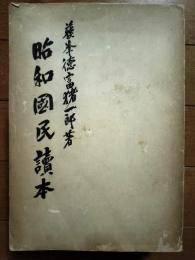 蘇峰德富猪一郎著
昭和國民讀本